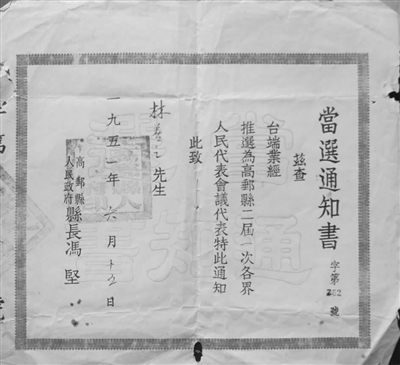 當選通知書
字第 號
茲查
台端業經
推選為高郵縣二屆一次各界
人民代表會議代表特此通知
此致
林 先生
高郵縣
人民政府
縣長馮堅
一九五一年六月十五日